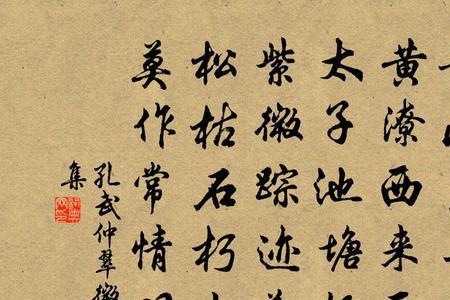 黄潦西来
太子池塘
紫微踪迹
松枯石朽
莫作常情
孔武仲翠微
集